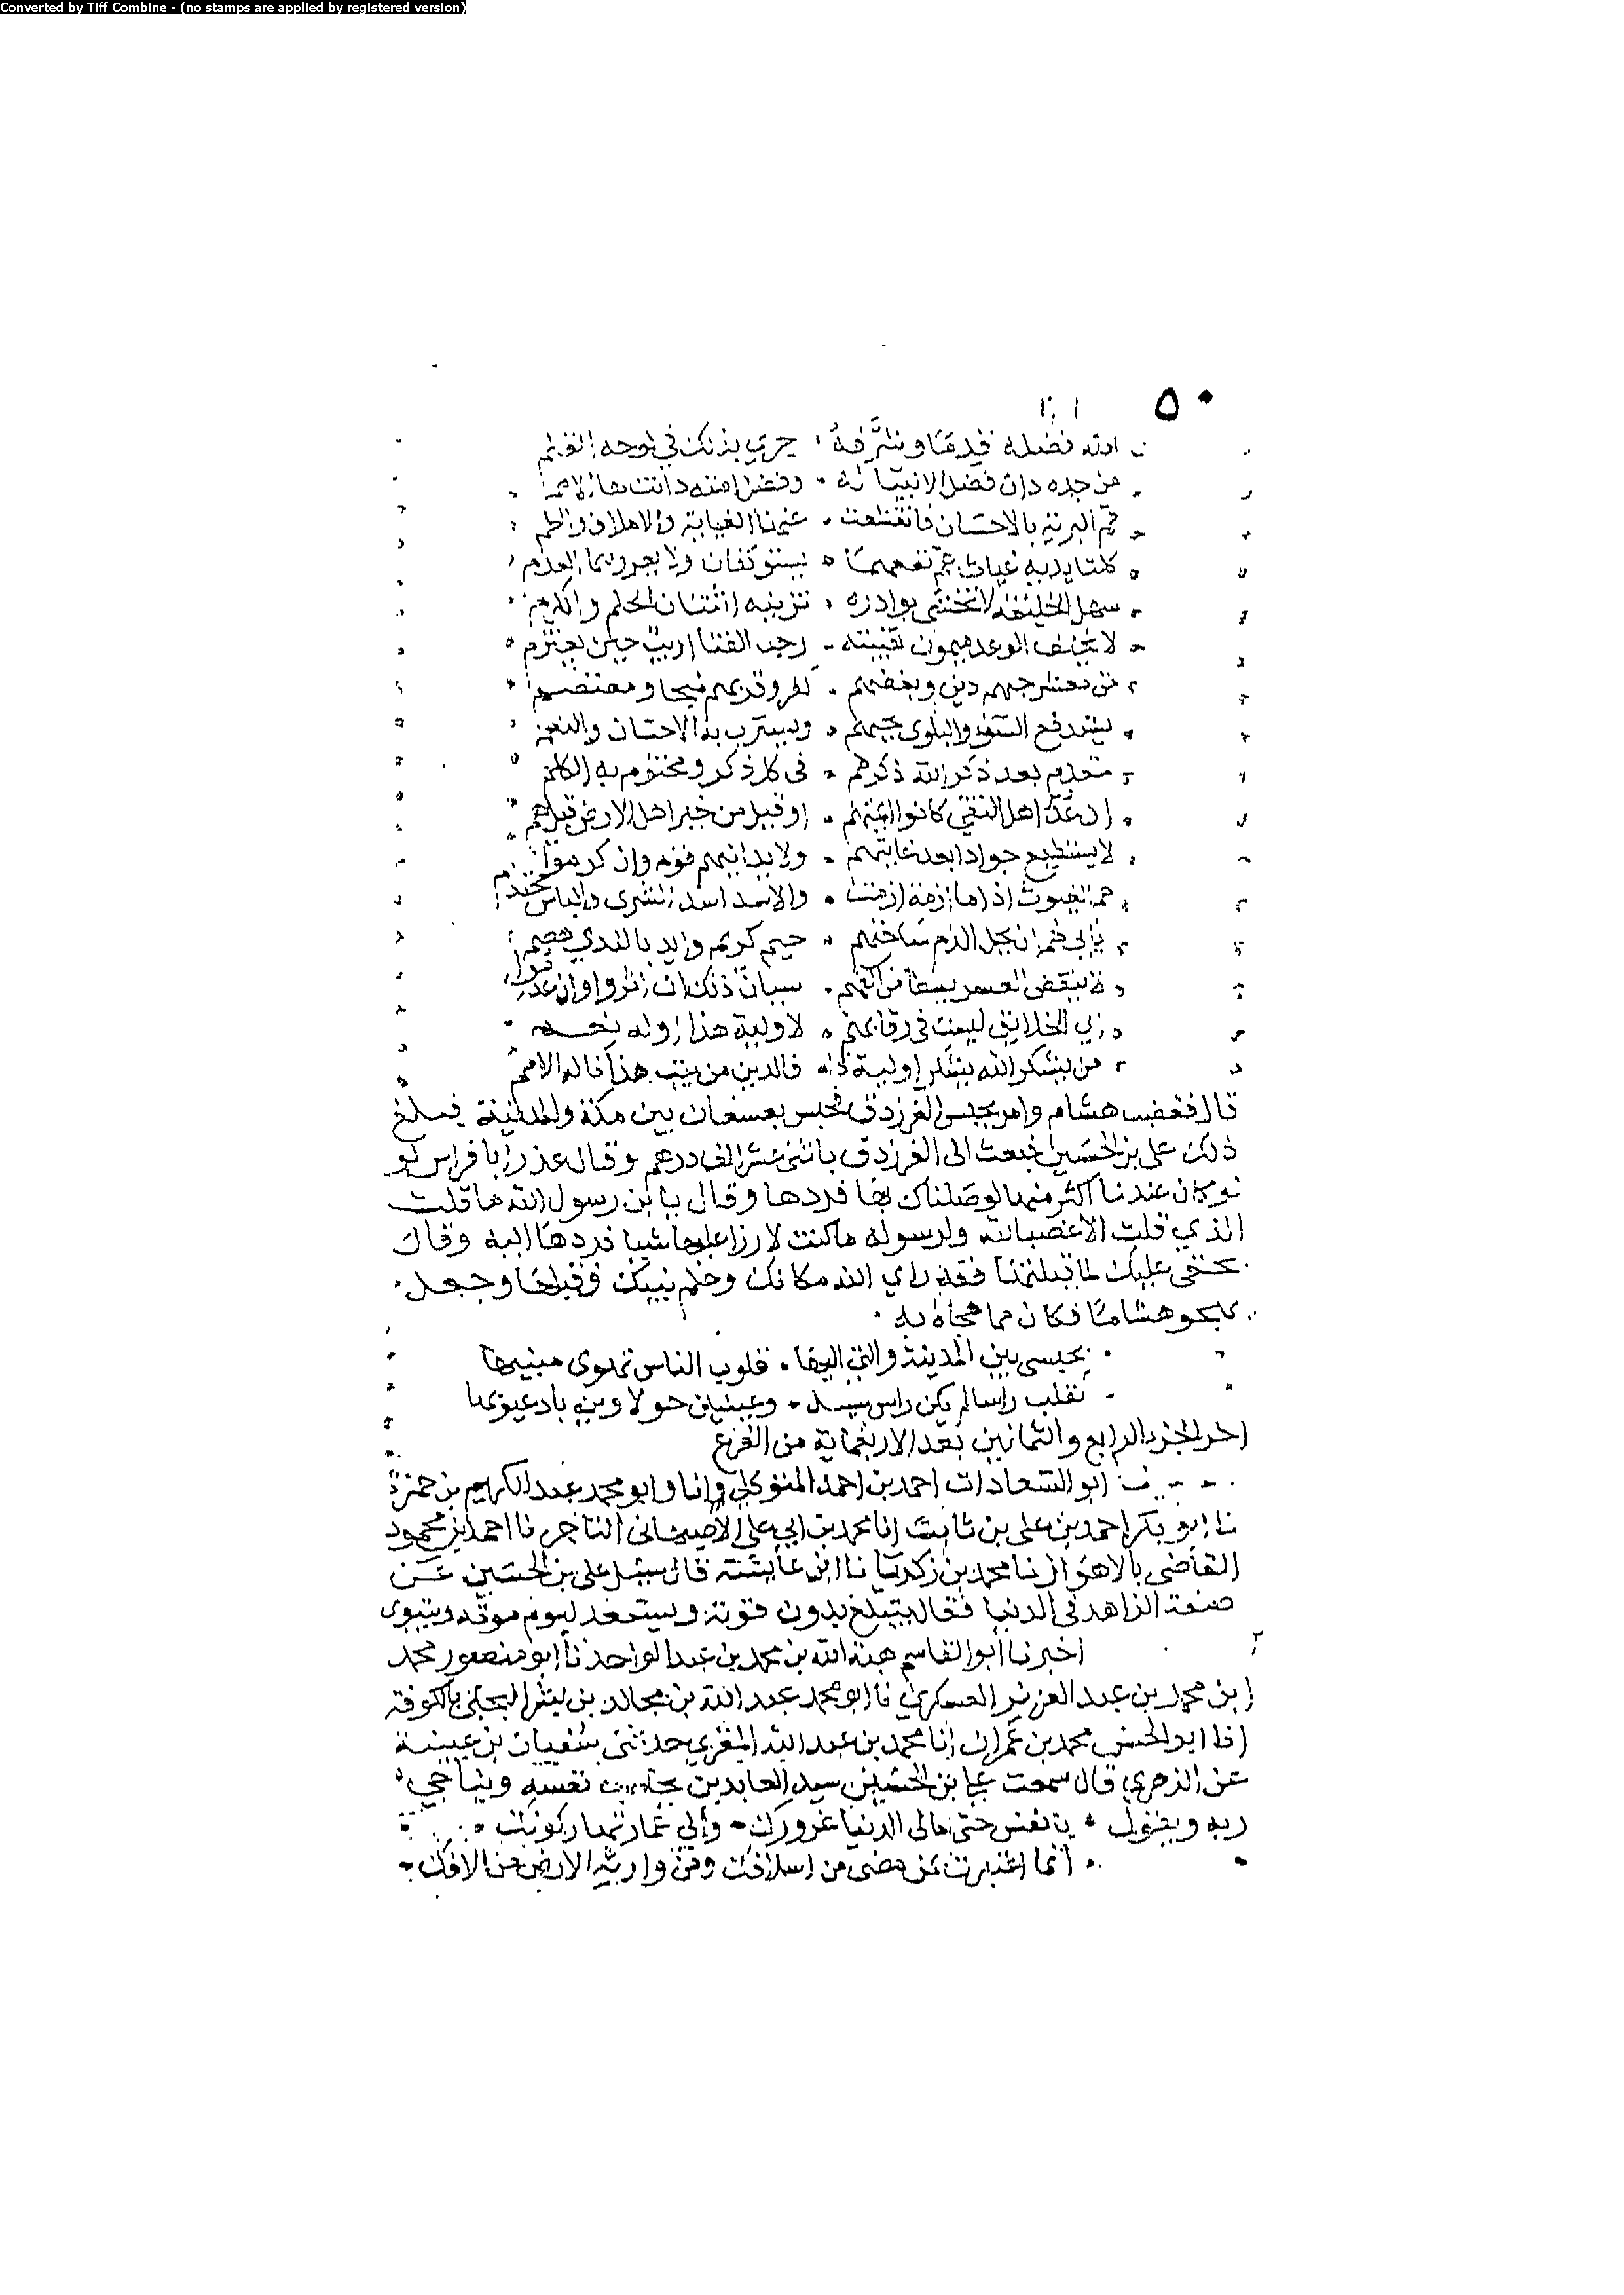 Converted by Tiff Combine - (no stamps are applied by registered version)
٥٠
الله فضله قدما وشرفه جرى بذلك في لوحه القلم
من جده دان فضل الانبيا له وفضل امته دانت لها الامم
عم البرية بالاحسان فانقشعت عنها الغيابة والاملاق والظلم
كلتا يديه غياث عم نفعهما يستوكفان ولا يعروهما العدم
سهل الخليقة لا تخشى بوادره تزينه اثنتان الحلم والكرم
لا يخلف الوعد ميمون نقيبته رحب الفنا اريب حين يعتزم
من معشر حبهم دين وبغضهم كفر وقربهم منجا ومعتصم
يستدفع السوء والبلوى بحبهم ويسترب به الاحسان والنعم
مقدم بعد ذكر الله ذكرهم في كل ذكر ومختوم به الكلم
ان عد اهل التقى كانوا ائمتهم او قيل من خير اهل الارض قيل هم
لا يستطيع جواد بعد غايتهم ولا يدانيهم قوم وان كرموا
هم الغيوث اذا ما ازمة ازمت والاسد اسد الشرى والباس محتدم
يابى لهم ان يحل الذم ساحتهم خيم كريم وايد بالندى هضم
لا ينقص العسر بسطا من اكفهم سيان ذلك ان اثروا وان عدموا
اي الخلايق ليست في رقابهم لاولية هذا اوله نعم
من يشكر الله يشكر اولية ذا فالدين من بيت هذا ناله الامم
قال فغضب هشام وامر بحبس الفرزدق فحبس بعسفان بين مكة والمدينة فبلغ
ذلك علي بن الحسين فبعث الى الفرزدق باثني عشر الف درهم وقال عذر ابا فراس لو
كان عندنا اكثر منها لوصلناك بها فردها وقال يا بن رسول الله ما قلت
الذي قلت الا غضبا لله ولرسوله ما كنت لارزا عليها شيا فردها اليه وقال
بحقي عليك لما قبلتها فقد راى الله مكانك وعلم نيتك فقبلها وجعل
يهجو هشاما فكان مما هجاه به
يحبسني بين المدينة والتي اليها قلوب الناس تهوى منيبها
تقلب راسا لم يكن راس سيد وعينين حولاوين باد عيوبها
اخر الجزء الرابع والثمانين بعد الاربعماية من الفرع
ابو السعادات احمد بن احمد المتوكلي وانا وابو محمد عبد الكريم بن حمزة
نا ابو بكر احمد بن علي بن ثابت انا محمد بن ابي علي الاصبهاني التاجر نا احمد بن محمود
القاضي بالاهواز نا محمد بن زكريا نا ابن عايشة قال سئل علي بن الحسين عن
صفة الزاهد في الدنيا فقال يتبلغ بدون قوته ويستعد ليوم موته ويتبرى
اخبرنا ابو القاسم هبة الله بن محمد بن عبد الواحد نا ابو منصور محمد
ابن محمد بن عبد العزيز العسكري نا ابو محمد عبد الله بن مجالد بن بشر البجلي بالكوفة
انا ابو الحسن محمد بن عمران انا محمد بن عبد الله المقري حدثني سفيان بن عيينة
عن الزهري قال سمعت علي بن الحسين سيد العابدين يحاسب نفسه ويناجي
ربه ويقول يا نفس حتى م الى الدنيا غرورك والى عمارتها ركونك
اما اعتبرت بمن مضى من اسلافك ومن وارته الارض من الافك